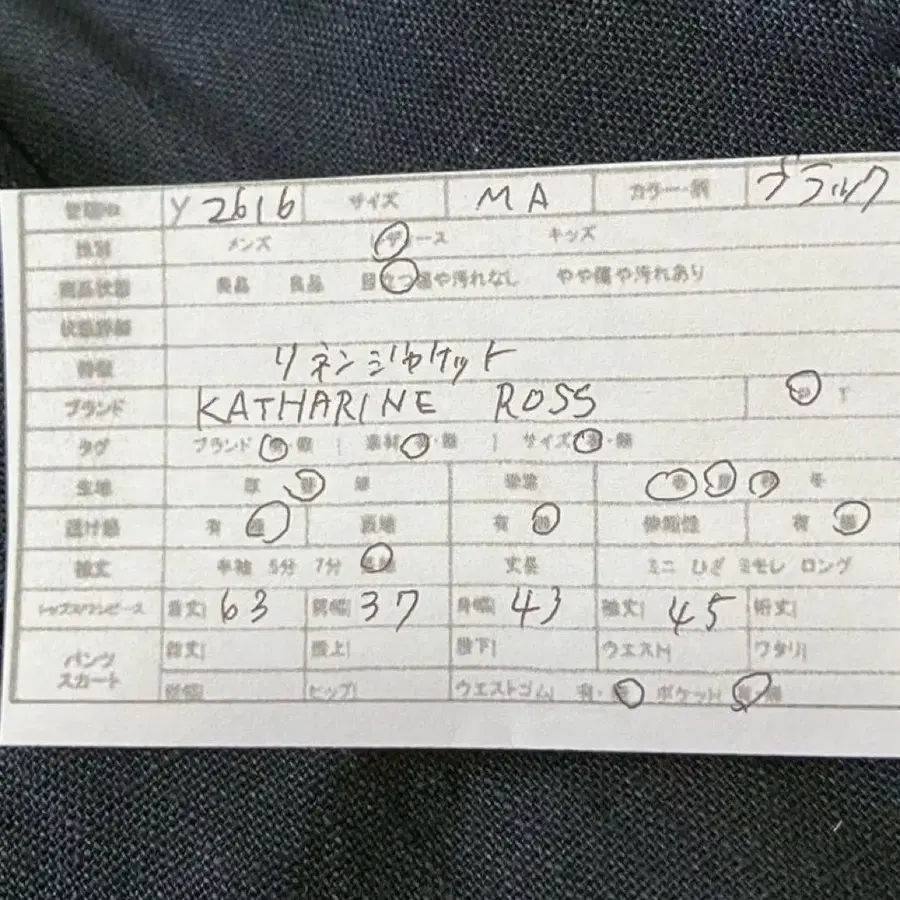 管理No Y 2616 サイズ MA カラー・柄 ブラック
性別 メンズ ース キッズ
商品状態 美品 良品 目立つ傷や汚れなし やや傷や汚れあり
状態詳細
特徴 リネンジャケット
ブランド KATHARINE ROSS
タグ ブランド ・無 | 素材 ・無 | サイズ ・無
生地 厚 薄 季節 春 冬
透け感 有 裏地 有 伸縮性 有
袖丈 半袖 5分 7分 丈長 ミニ ひざ ミモレ ロング
トップス/ワンピース 着丈| 63 肩幅| 37 身幅| 43 袖丈| 45 裄丈|
パンツ スカート 総丈| 股上| 股下| ウエスト| ワタリ|
裾幅| ヒップ| ウエストゴム| 有・ ポケット| ・無